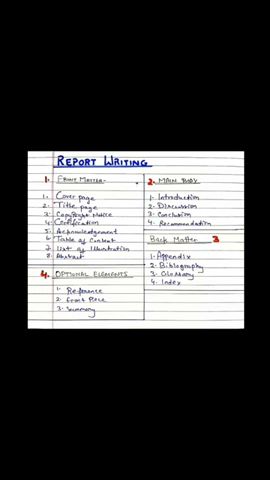 REPORT WRITING
1. FRONT MATTER-
1. Cover page
2. Title page
3. Copyright Notice
4. Certification
5. Acknowledgement
6. Table of Content
7. List of Illustration
8. Abstract
2. MAIN BODY
1. Introduction
2. Discussion
3. Conclusion
4. Recommendation
Back Matter 3
1. Appendix
2. Bibliography
3. Glossary
4. Index
4. OPTIONAL ELEMENTS
1. Reference
2. Front Piece
3. Summary